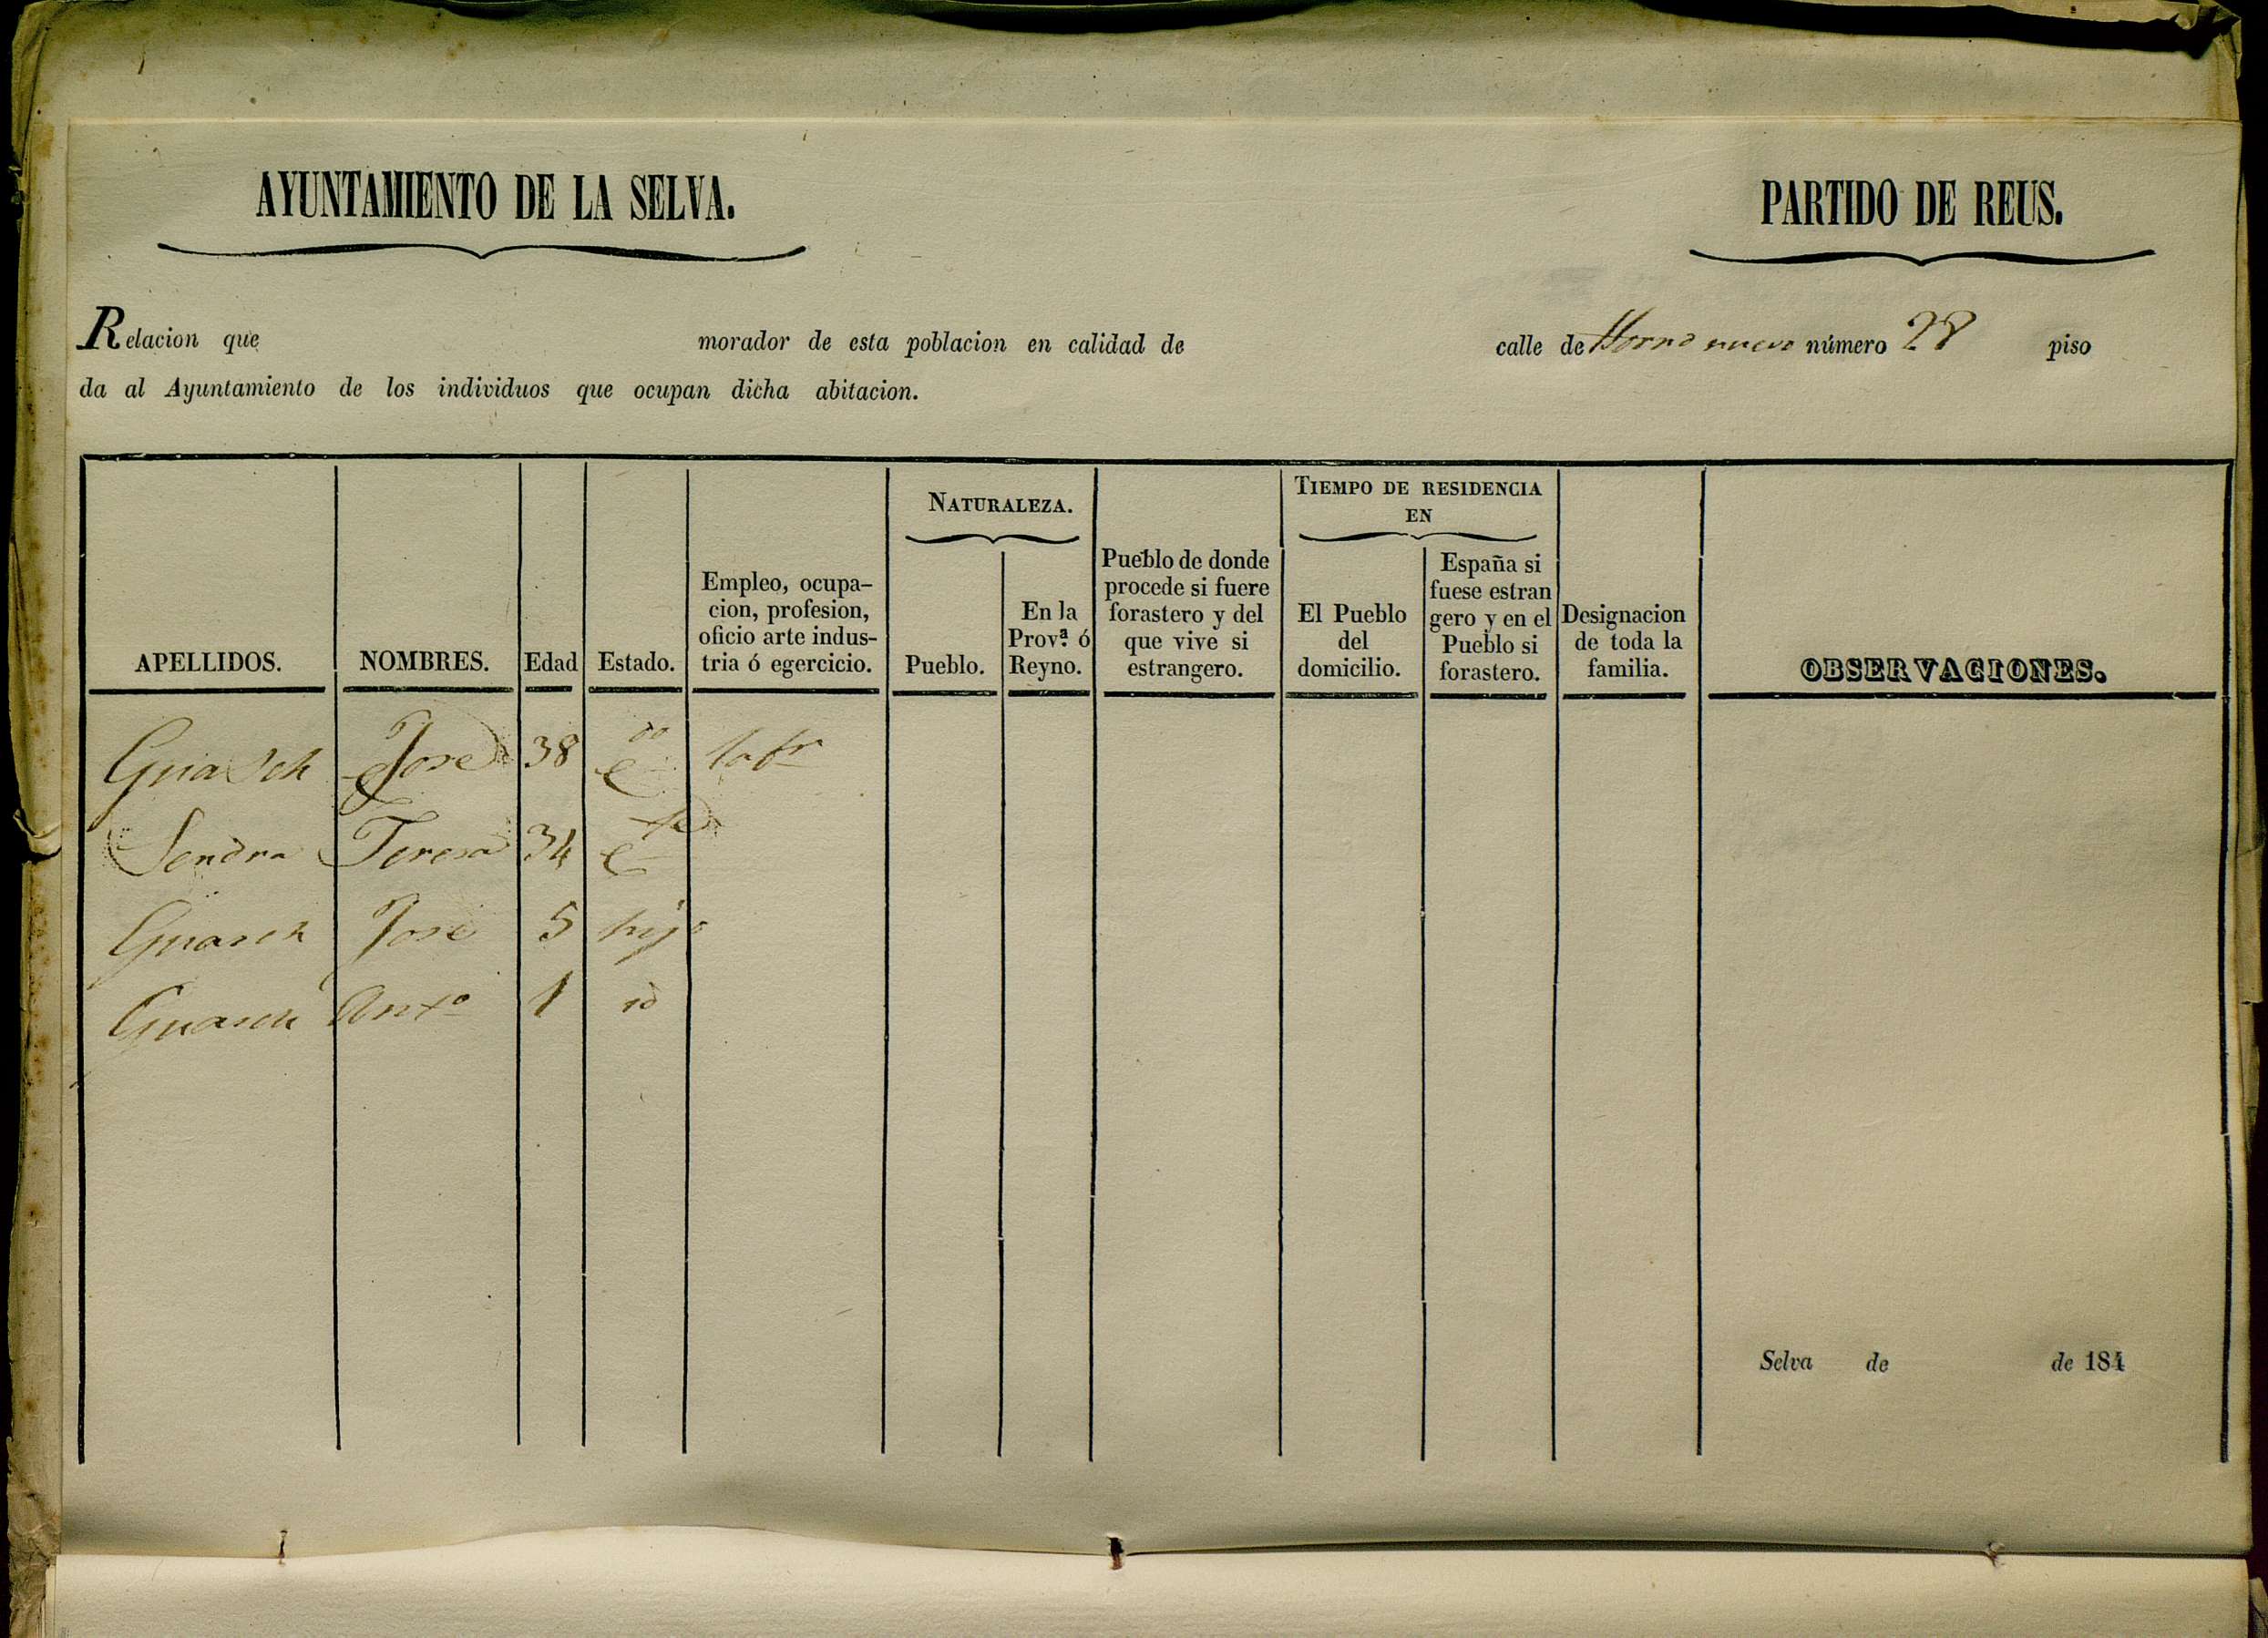 AYUNTAMIENTO DE LA SELVA. PARTIDO DE REUS.
Relacion que morador de esta poblacion en calidad de calle de Horno nuevo número 28 piso
da al Ayuntamiento de los individuos que ocupan dicha abitacion.
APELLIDOS.
NOMBRES.
Edad
Estado.
Empleo, ocupa-
cion, profesion,
oficio arte indus-
tria ó egercicio.
NATURALEZA.
Pueblo.
En la
Prov.ª ó
Reyno.
Pueblo de donde
procede si fuere
forastero y del
que vive si
estrangero.
TIEMPO DE RESIDENCIA
EN
El Pueblo
del
domicilio.
España si
fuese estran
gero y en el
Pueblo si
forastero.
Designacion
de toda la
familia.
OBSERVACIONES.
Guasch Jose 38 c.do labr
Sendra Teresa 34 c.da
Guasch Jose 5 hijo
Guasch Anto 1 id
Selva de de 184